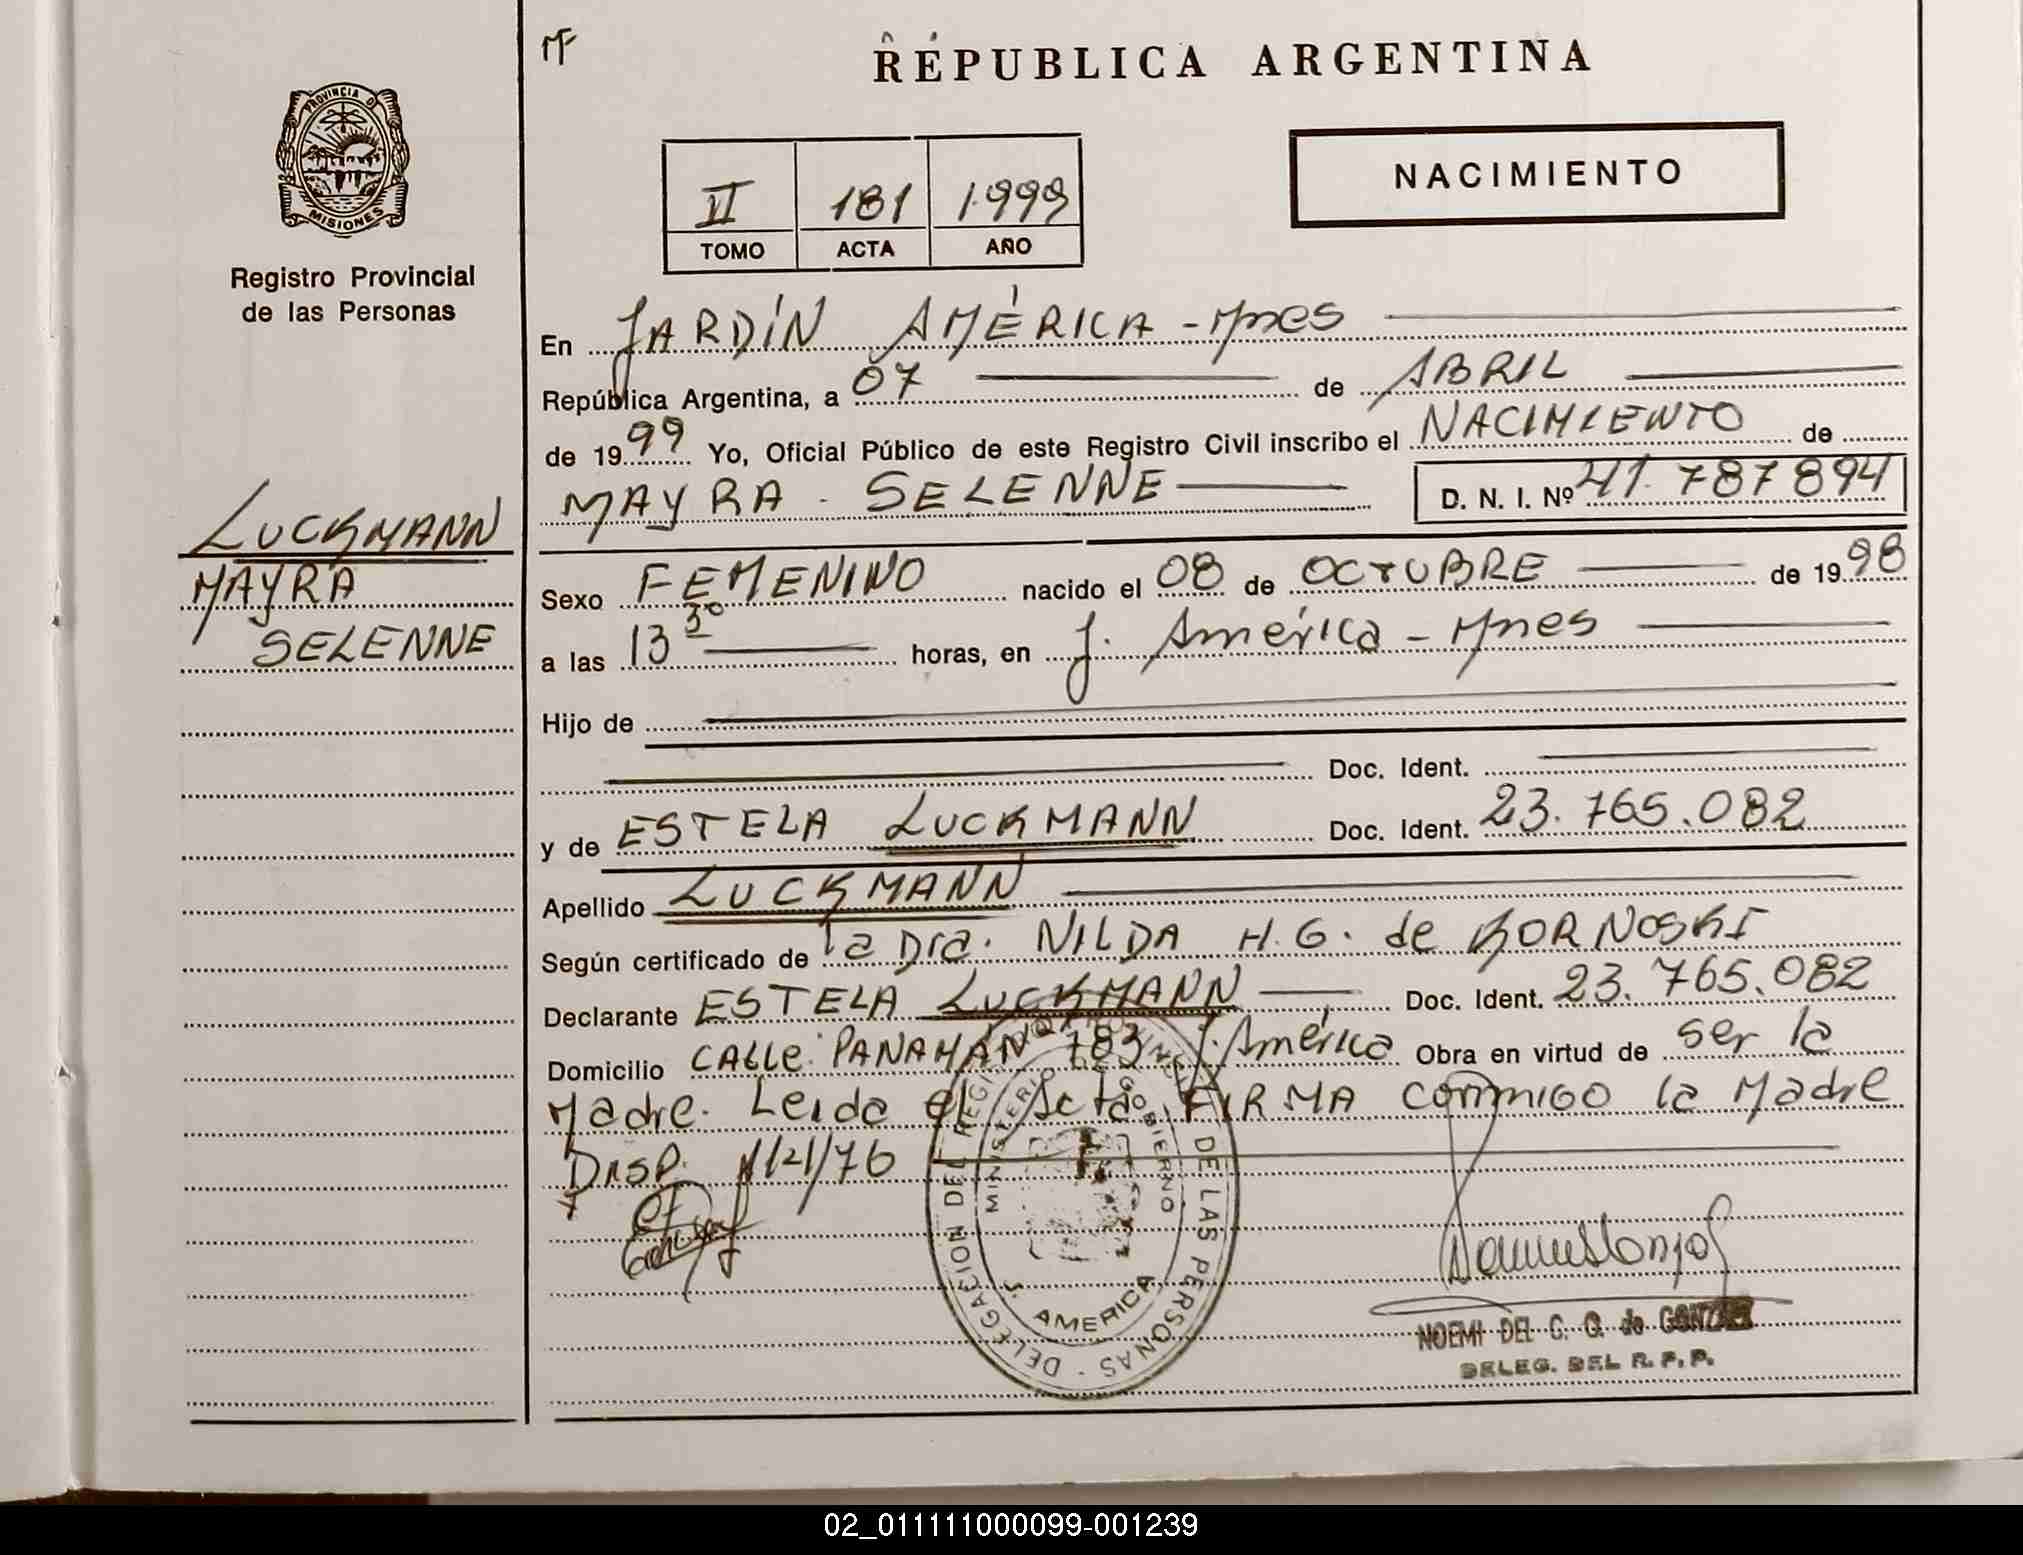 MF
REPUBLICA ARGENTINA
PROVINCIA DE
MISIONES
Registro Provincial
de las Personas
II 181 1.999
TOMO ACTA AÑO
NACIMIENTO
En JARDÍN AMÉRICA - Mnes
República Argentina, a 07 de ABRIL
de 1999 Yo, Oficial Público de este Registro Civil inscribo el NACIMIENTO de
MAYRA - SELENNE D. N. I. Nº 41.787894
LUCKMANN
MAYRA
SELENNE
Sexo FEMENINO nacido el 08 de OCTUBRE de 1998
a las 13 30 horas, en J. América - Mnes
Hijo de
Doc. Ident.
y de ESTELA LUCKMANN Doc. Ident. 23.765.082
Apellido LUCKMANN
Según certificado de la Dra. NILDA H. G. de KORNOSKI
Declarante ESTELA LUCKMANN Doc. Ident. 23.765.082
Domicilio CALLE: PANAMÁ Nº 783 J. América Obra en virtud de ser la
Madre. Leida el Acta FIRMA conmigo la Madre
DELEGACION DEL REGISTRO PROVINCIAL DE LAS PERSONAS
MINISTERIO DE GOBIERNO
J. AMERICA
NOEMI DEL C. G. de GONZALEZ
DELEG. DEL R. P. P.
02_011111000099-001239